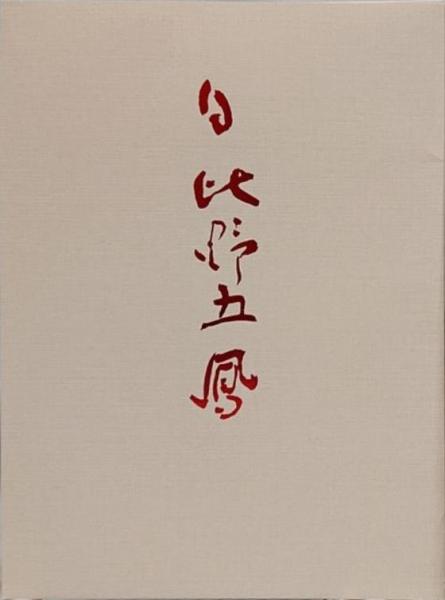 日比野五鳳